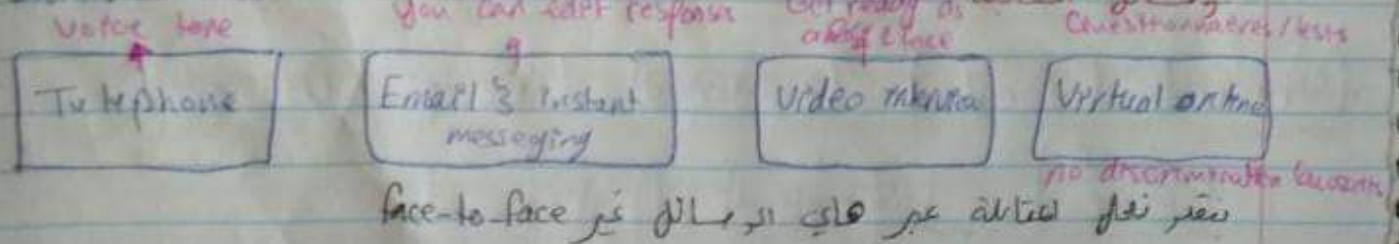 Voice tone
you can edit response
Get ready as
face
Questionnaires/tests
Telephone
Email & instant
messeging
Video
Virtual
no discrimination
بنقدر نعمل المقابلة عبر هاي الوسائل غير face-to-face